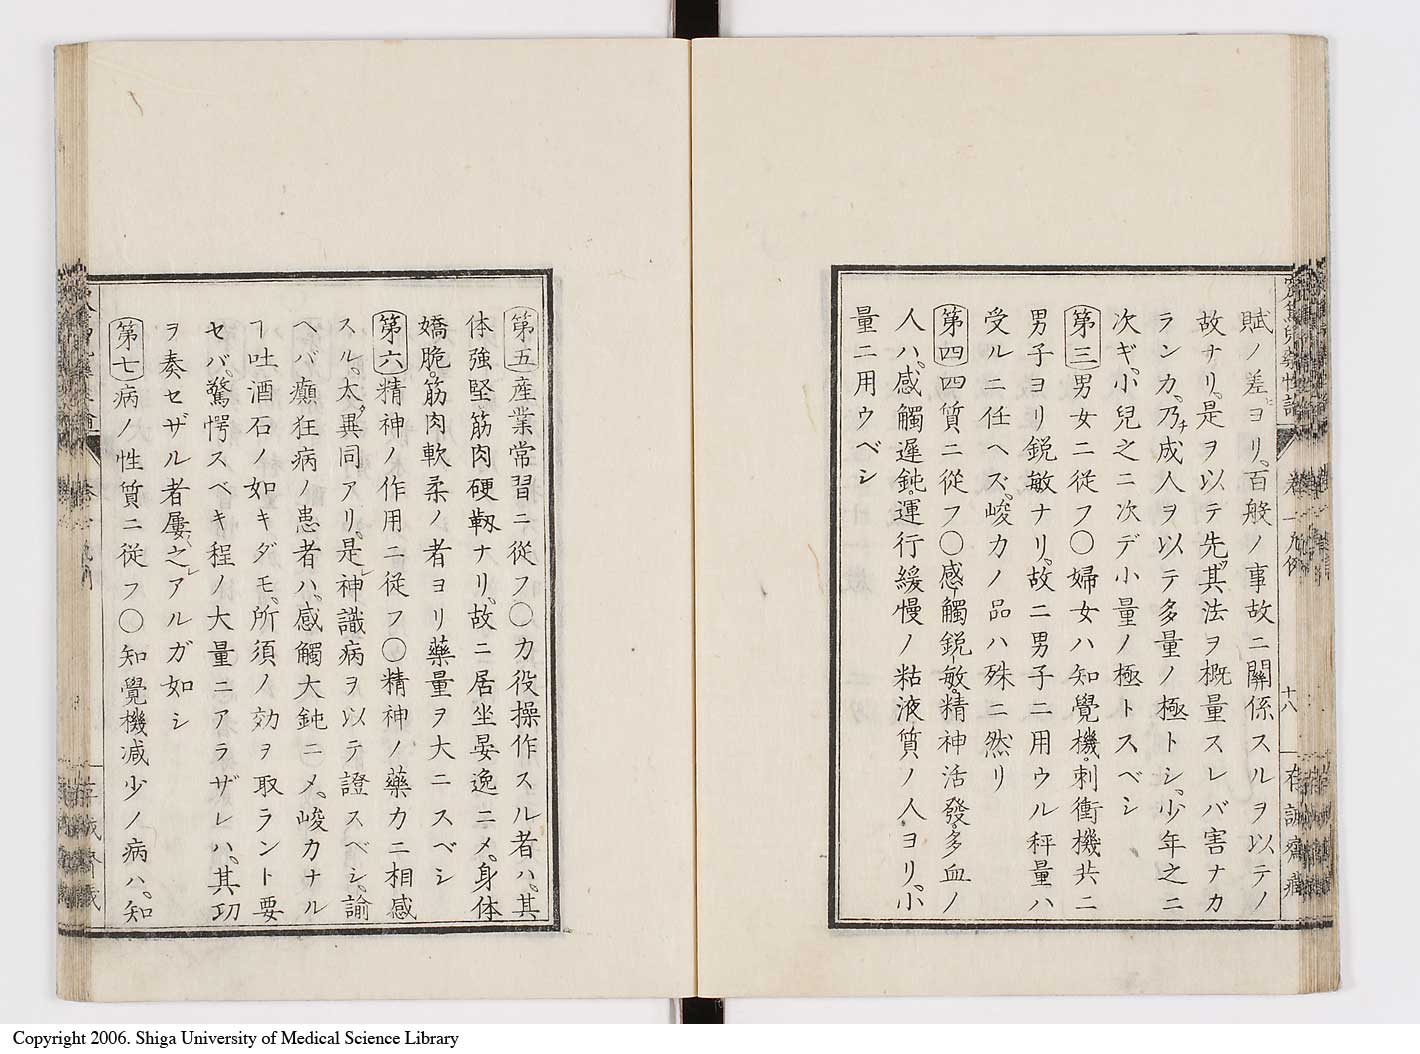 賦ノ差ヒヨリ。百般ノ事故ニ關係スルヲ以テノ
故ナリ。是ヲ以テ先。其法ヲ概量スレバ害ナカ
ランカ。乃チ成人ヲ以テ多量ノ極トシ。少年之ニ
次ギ。小兒之ニ次デ小量ノ極トスベシ
第三男女ニ從フ〇婦女ハ知覺機。刺衝機共ニ
男子ヨリ鋭敏ナリ。故ニ男子ニ用ウル秤量ハ
受ルニ任ヘズ。峻カノ品ハ殊ニ然リ
第四四質ニ從フ〇感觸鋭敏。精神活發。多血ノ
人ハ。感觸遲鈍。運行緩慢ノ粘液質ノ人ヨリ。小
量ニ用ウベシ
卷一 凡例
十八
存誠齋藏
第五産業常習ニ從フ〇力役操作スル者ハ。其
体強堅筋肉硬靱ナリ。故ニ居坐晏逸ニメ。身体
嬌脆。筋肉軟柔ノ者ヨリ藥量ヲ大ニスベシ
第六精神ノ作用ニ從フ〇精神ノ藥力ニ相感
スル。太タ異同アリ。是レ神識病ヲ以テ證スベシ。諭
ヘバ癲狂病ノ患者ハ。感觸大鈍ニメ。峻力ナル
ヿ吐酒石ノ如キダモ。所須ノ効ヲ取ラント要
セバ。驚愕スベキ程ノ大量ニアラザレハ。其功
ヲ奏セザル者屢之レアルガ如シ
第七病ノ性質ニ從フ〇知覺機減少ノ病ハ。知
Copyright 2006. Shiga University of Medical Science Library